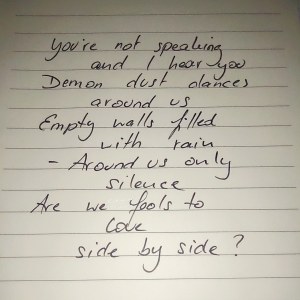 You're not speaking
and I hear you
Demon dust dances
around us
Empty walls filled
with rain
- Around us only
silence
Are we fools to
love
side by side?